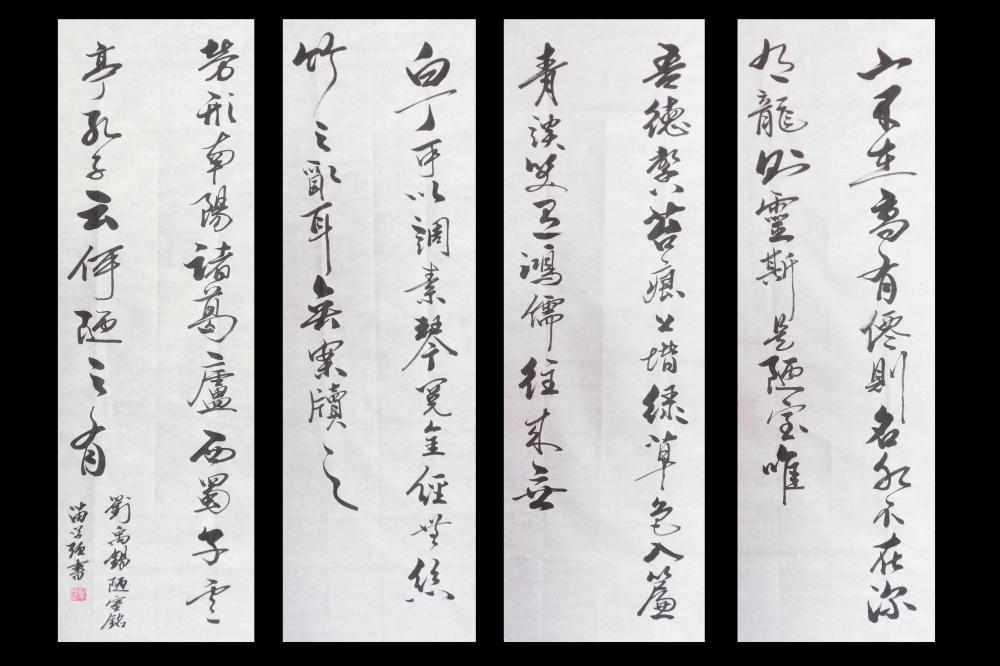 山不在高有僊則名水不在深
有龍则靈斯是陋室唯
吾德馨苔痕上堦緑草色入簾
青談笑有鴻儒往来無
白丁可以調素琴閲金經無絲
竹之亂耳無案牘之
勞形南陽諸葛廬西蜀子雲
亭孔子云何陋之有
劉禹錫陋室銘
苗書